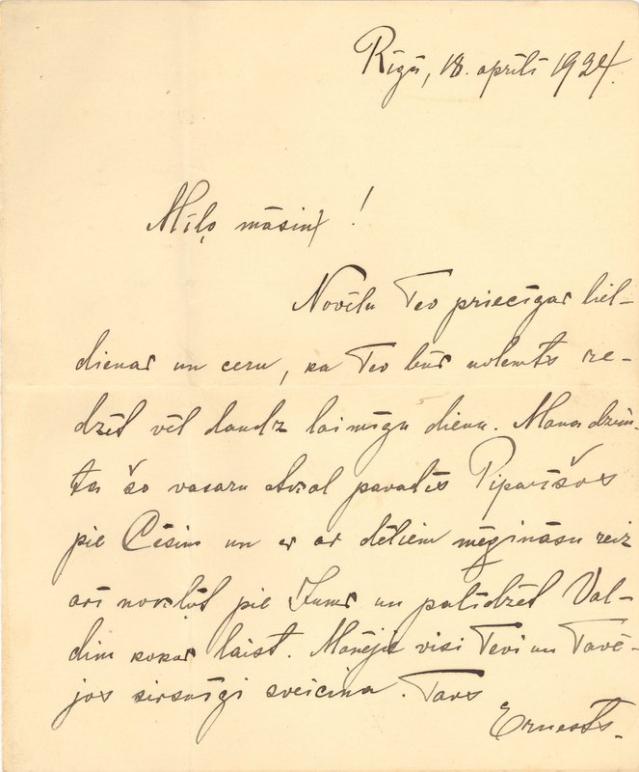 Rīgā, 18. aprīlī 1924.
Mīļo māsiņ!
Novēlu Tev priecīgas liel-
dienas un ceru, ka Tev būs nolemts re-
dzēt vēl daudz laimīgu dienu. Mana dzim-
ta šo vasaru atkal pavadīs Piparīšos
pie Cēsīm un es ar dēliem mēģināsu reiz
arī nokļūt pie Jums un palīdzēt Val-
dim kokos laist. Manējie visi Tevi un Tavē-
jos sirsnīgi sveicina. Tavs
Ernests.